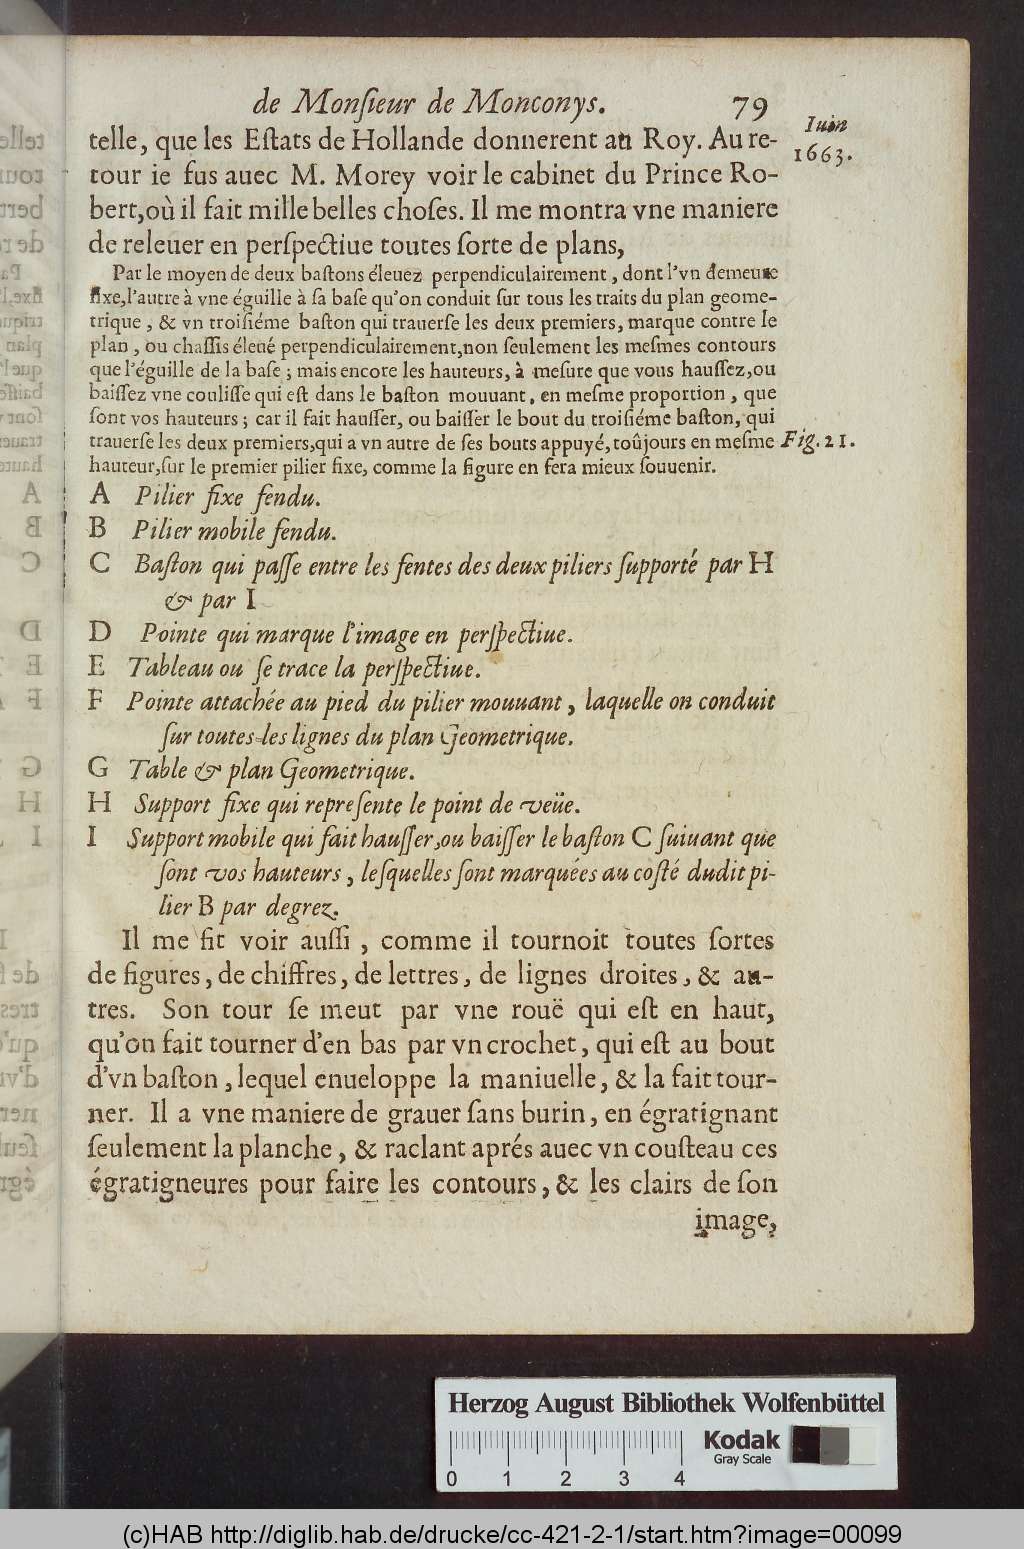 de Monſieur de Monconys. 79
Iuin
1663.
telle, que les Eſtats de Hollande donnerent au Roy. Au re-
tour ie fus auec M. Morey voir le cabinet du Prince Ro-
bert, où il fait mille belles choſes. Il me montra vne maniere
de releuer en perſpectiue toutes ſorte de plans,
Par le moyen de deux baſtons éleuez perpendiculairement, dont l'vn demeure
fixe, l'autre à vne éguille à ſa baſe qu'on conduit ſur tous les traits du plan geome-
trique, & vn troiſiéme baſton qui trauerſe les deux premiers, marque contre le
plan, ou chaſſis éleué perpendiculairement, non ſeulement les meſmes contours
que l'éguille de la baſe; mais encore les hauteurs, à meſure que vous hauſſez, ou
baiſſez vne couliſſe qui eſt dans le baſton mouuant, en meſme proportion, que
ſont vos hauteurs; car il fait hauſſer, ou baiſſer le bout du troiſiéme baſton, qui
trauerſe les deux premiers, qui a vn autre de ſes bouts appuyé, toûjours en meſme Fig. 21.
hauteur, ſur le premier pilier fixe, comme la figure en fera mieux ſouuenir.
A Pilier fixe fendu.
B Pilier mobile fendu.
C Baſton qui paſſe entre les fentes des deux piliers ſupporté par H
& par I
D Pointe qui marque l'image en perſpectiue.
E Tableau ou ſe trace la perſpectiue.
F Pointe attachée au pied du pilier mouuant, laquelle on conduit
ſur toutes les lignes du plan Geometrique.
G Table & plan Geometrique.
H Support fixe qui repreſente le point de veüe.
I Support mobile qui fait hauſſer, ou baiſſer le baſton C ſuiuant que
ſont vos hauteurs, leſquelles ſont marquées au coſté dudit pi-
lier B par degrez.
Il me fit voir auſſi, comme il tournoit toutes ſortes
de figures, de chiffres, de lettres, de lignes droites, & au-
tres. Son tour ſe meut par vne rouë qui eſt en haut,
qu'on fait tourner d'en bas par vn crochet, qui eſt au bout
d'vn baſton, lequel enueloppe la maniuelle, & la fait tour-
ner. Il a vne maniere de grauer ſans burin, en égratignant
ſeulement la planche, & raclant aprés auec vn couſteau ces
égratigneures pour faire les contours, & les clairs de ſon
image,
Herzog August Bibliothek Wolfenbüttel
Kodak
Gray Scale
0 1 2 3 4
(c)HAB http://diglib.hab.de/drucke/cc-421-2-1/start.htm?image=00099